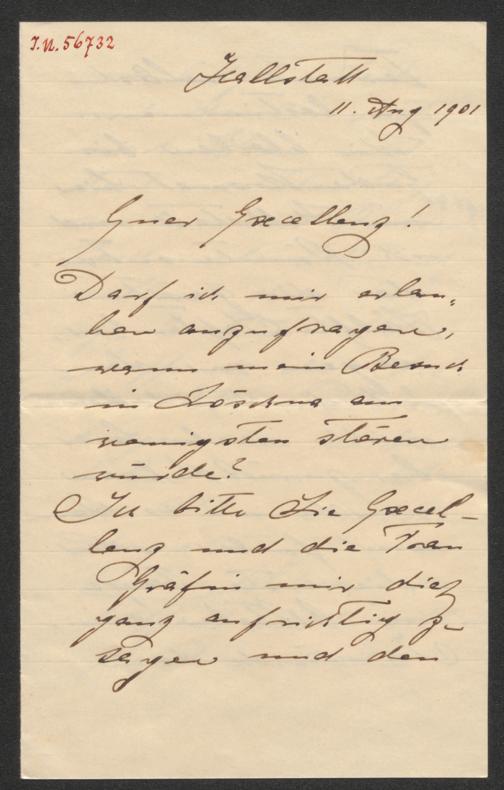 I.N. 56732
Hallstatt
11. Aug 1901
Euer Excellenz!
Darf ich mir erlau-
ben anzufragen,
wann mein Besuch
in Löschna am
wenigsten stören
würde?
Ich bitte Sie Excel-
lenz und die Frau
Gräfin mir dieß
ganz aufrichtig zu
sagen und den